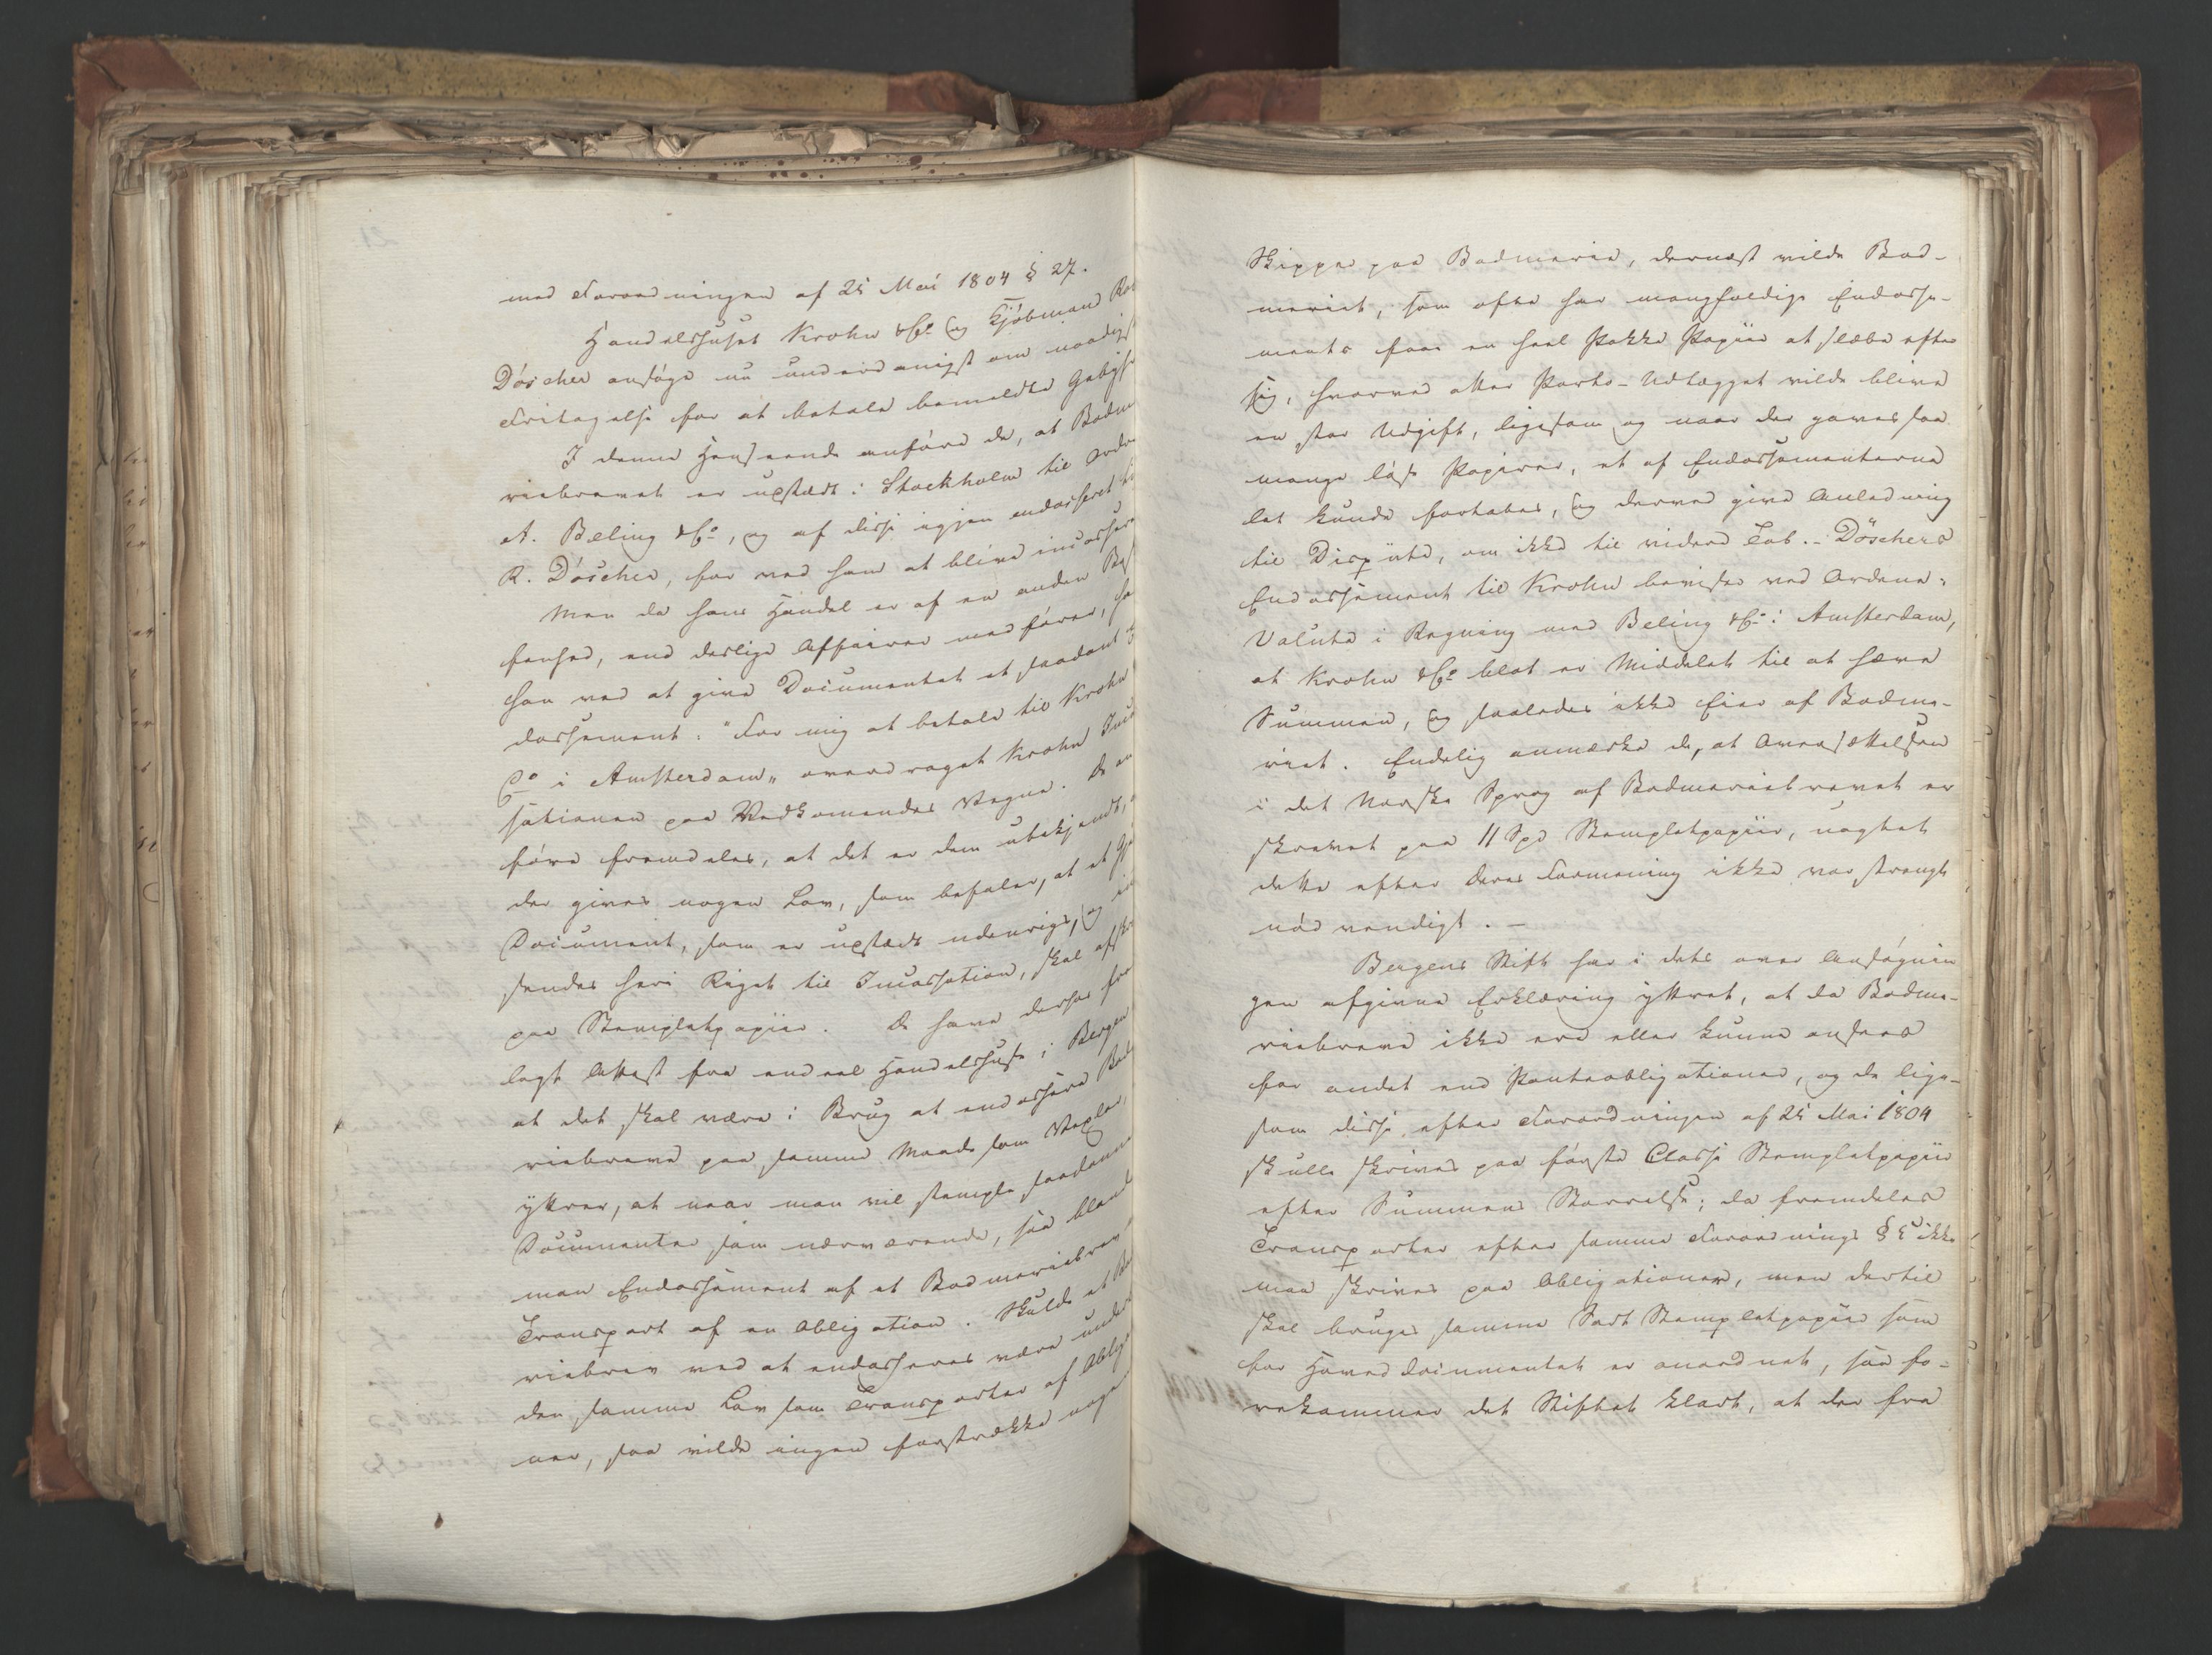 med Forordningen af 25 Mai 1804 § 27.
Handelshuset Krohn & Co og Kjöbmand Rol
Döscher ansöge nu underdanigst om naadigst
Fritagelse for at betale bemeldte Gebyhr
I denne Henseende anföre de, at Bodme
riebrevet er udstædt i Stockholm til Ordre
A. Beling & Co, og af disse igjen endosseret til
R. Döscher, for ved ham at blive incasseret
Men da hans Handel er af en anden Besk
fenhed, end deslige Affairer medförer, ha
han ved at give Documentet et saadant
dossement: "For mig at betale til Krohn
Co i Amsterdam" overdraget Krohn Inca
sationen paa Vedkommendes Vegne. De an
före fremdeles, at det er dem ubekjendt,
der gives nogen Lov, som befaler, at et
Document, som er udstædt udenrigs, og
sendes heri Riget til Incassation, skal afskr
paa Stempletpapiir. De have derhos frem
lagt Attest fra endeel Handelshuse i Bergen
at det skal være i Brug at endossere Bod
riebreve paa samme Maade som Vexler,
yttrer, at naar man vil stemple saadanne
Documenter som nærværende, saa bland
man Endossement af et Bodmeriebrev
Transport af en Obligation. Skulde et Bod
riebrev ved at endosseres være under
den samme Lov som Transporter af Oblig
ner, saa vilde ingen forstrække nogen
Skipper paa Bodmerie, dernæst vilde Bod-
meriet, som ofte har mangfoldige Endosse-
ments faae en heel Pakke Papiir at slæbe efter
sig, hvorved atter Porto-Udlægget vilde blive
en stor Udgift, ligesom og naar der gaves saa
mange löse Papirer, et af Endossementerne
let kunde fortabes, og derved give Anledning
til Dispüte, om ikke til videre Tab.- Döschers
Endossement til Krohn bevises ved Ordene:
Valuta i Regning med Beling & Co i Amsterdam,
at Krohn & Co blot er Middelet til at hæve
Summen, og saaledes ikke Eier af Bodme-
riet. Endelig anmærke de, at Oversættelsen
i det Norske Sprog af Bodmeriebrevet er
skrevet paa 11 Spd Stempletpapiir, uagtet
dette efter deres Formening ikke var strengt
nödvendigt.-
Bergens Stift har i dets over Ansögnin
gen afgivne Erklæring yttret, at da Bodme-
riebreve ikke ere eller kunne ansees
for andet end Panteobligationer, og da lige-
som disse, efter Forordningen af 25 Mai 1804
skulle skrives paa förste Classe Stempletpapiir
efter Summens Størrelse; da fremdeles
Transporter efter samme Forordnings § 5 ikke
maa skrives paa Obligationen, men dertil
skal bruges samme Sort Stempletpapiir som
for Hoveddocumentet er anordnet, saa fo-
rekommer det Stiftet klart, at der fra